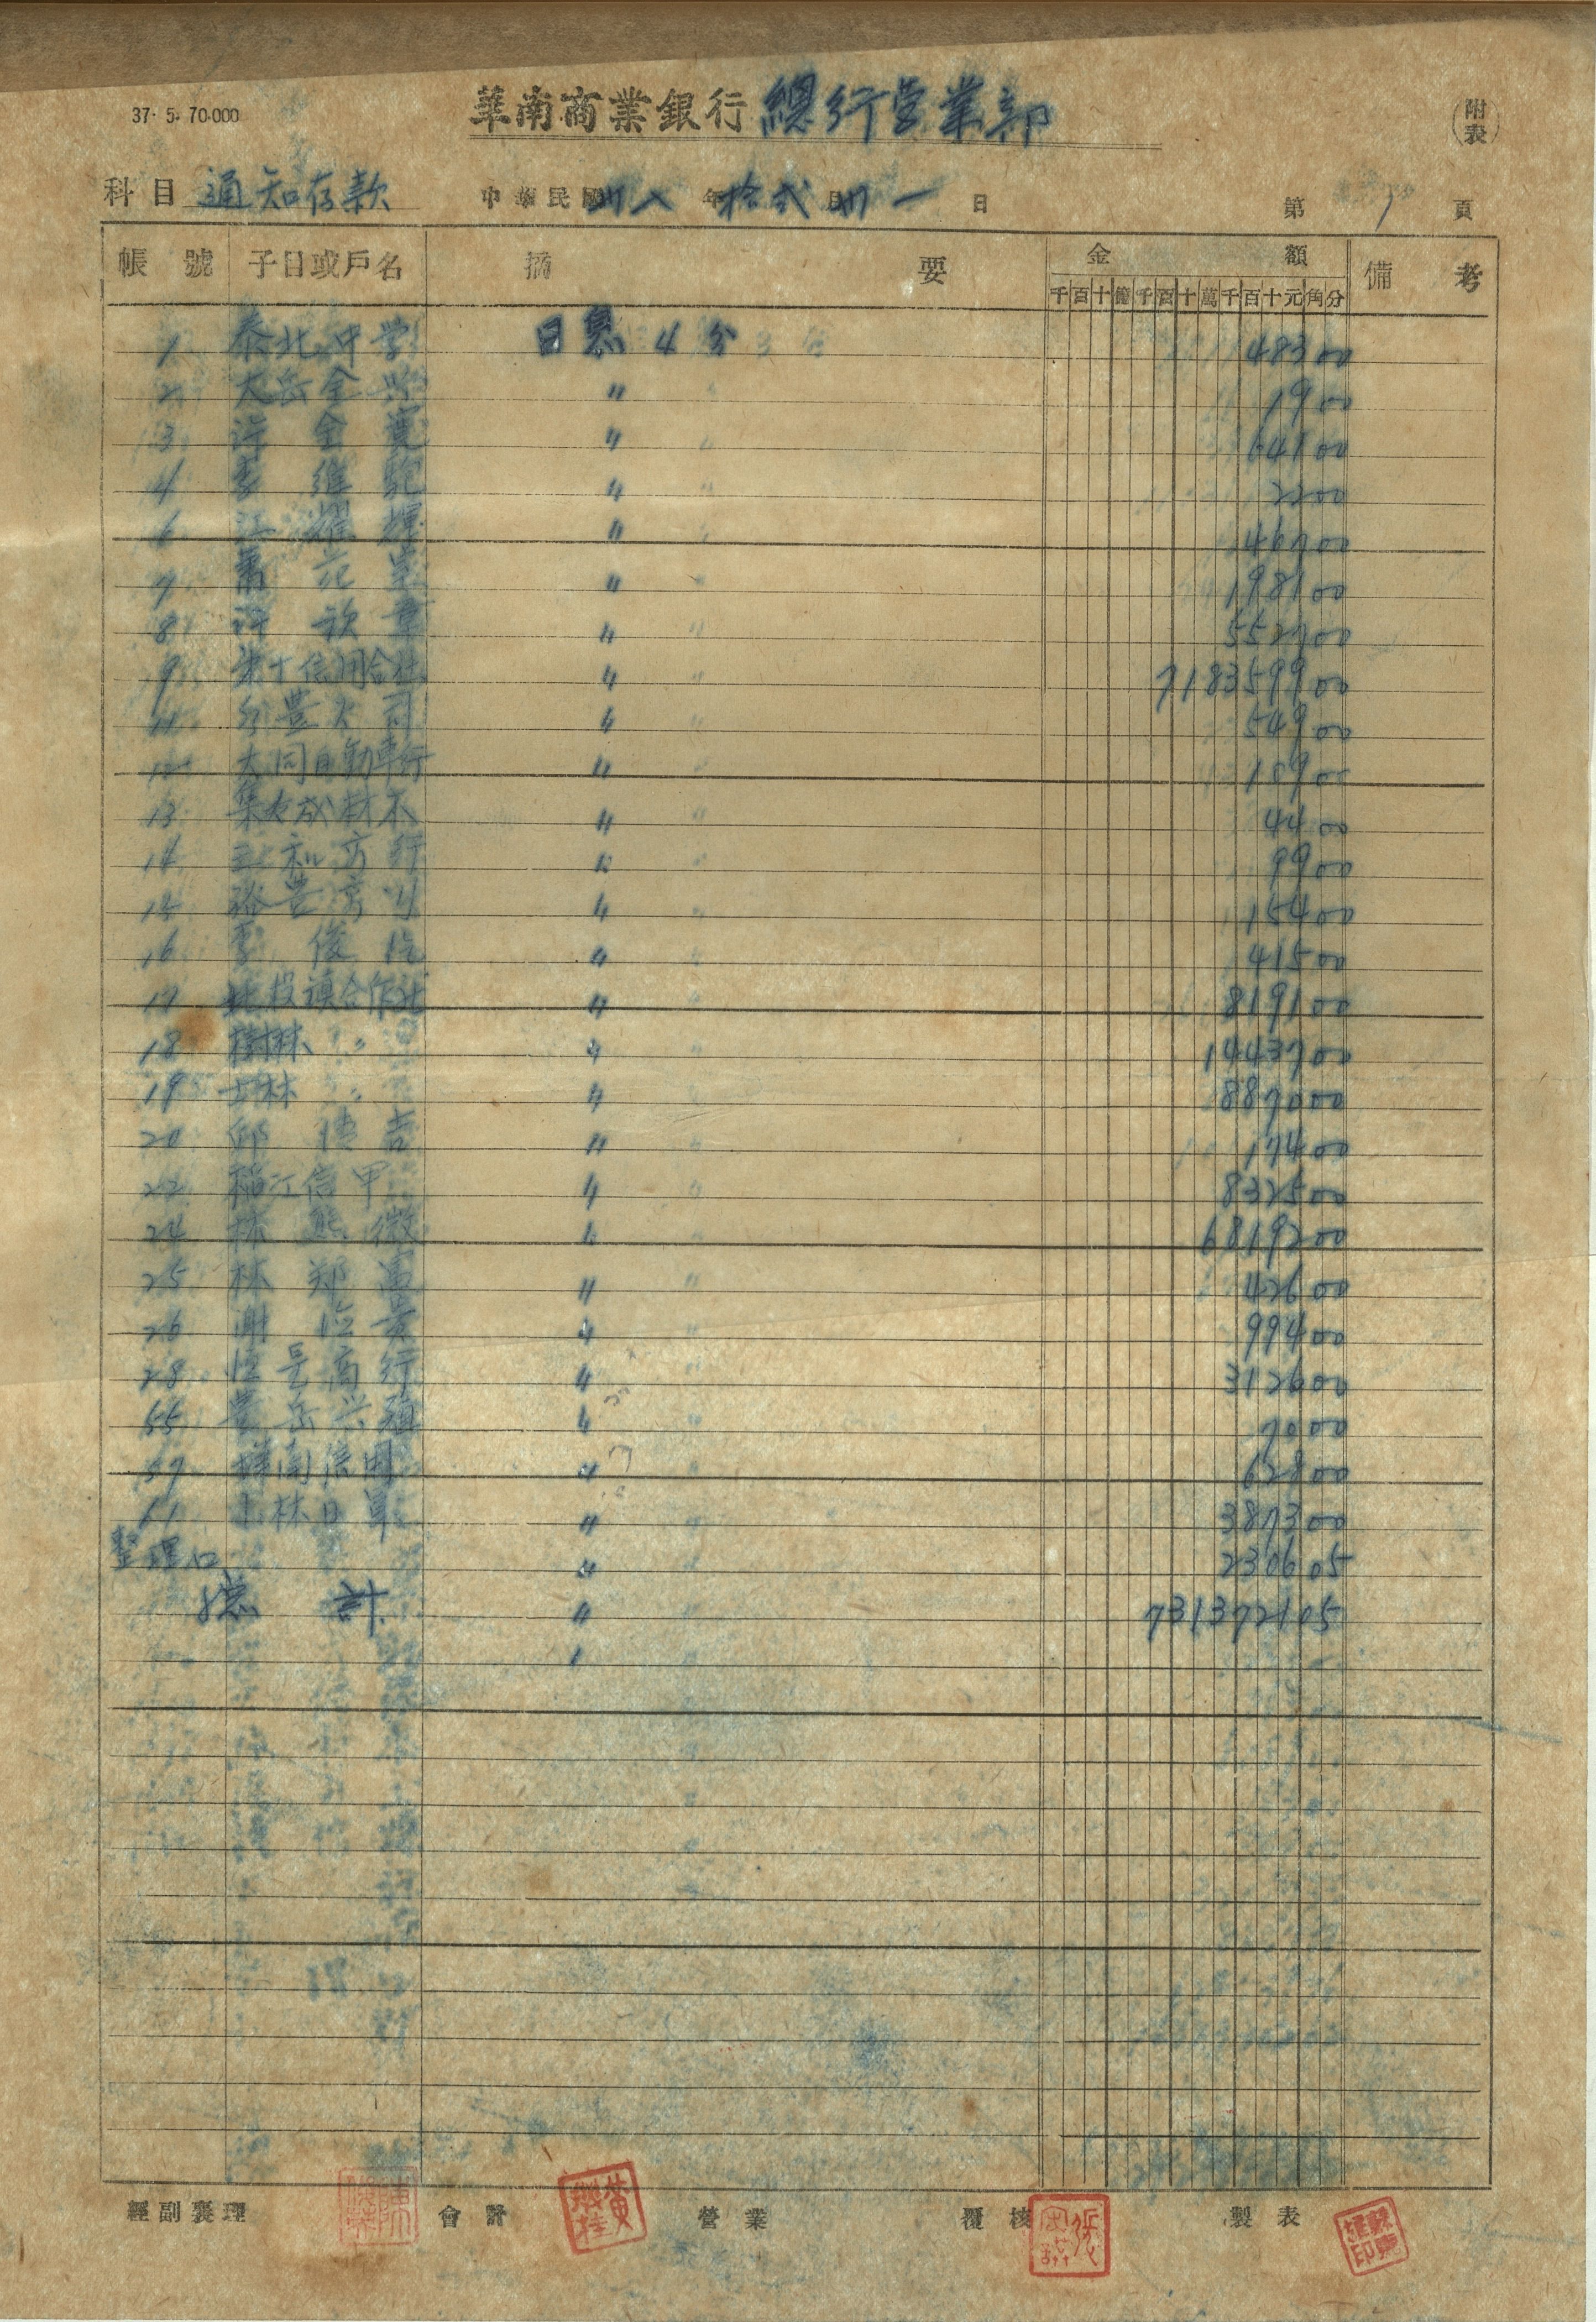 37. 5. 70.000
華南商業銀行 總行営業部
附表
科目 通知存款 中華民國卅八年拾弍月卅一日 第1頁
帳號 子目或戶名 摘要 金額 備考
千百十億千百十萬千百十元角分
1 泰北中学 日息4分 48300
2 大岳金 〃 1900
3 許金 〃 64100
4 李維 〃 2200
6 江耀輝 〃 46700
7 萧 〃 198100
8 許欽章 〃 552700
9 第十信用合社 〃 718359900
11 豊大 〃 54900
12 大同自動車行 〃 18900
13 集大成材木 〃 4400
14 三和商行 〃 9900
15 裕豊商 〃 15400
16 李俊 〃 41500
17 北投鎮合作社 〃 819100
18 樹林 〃 〃 1443700
19 士林 〃 〃 887000
20 邱 吉 〃 17400
22 稲江信甲 〃 832500
24 林熊徵 〃 6819200
25 林郑 〃 42600
26 謝 〃 99400
28 恒 商行 〃 312600
55 岳兴殖 〃 7000
57 南信用 〃 62800
11 士林 〃 387300
整理口 〃 230605
總計 〃 731372105
經副襄理 會計 營業 覆核 製表